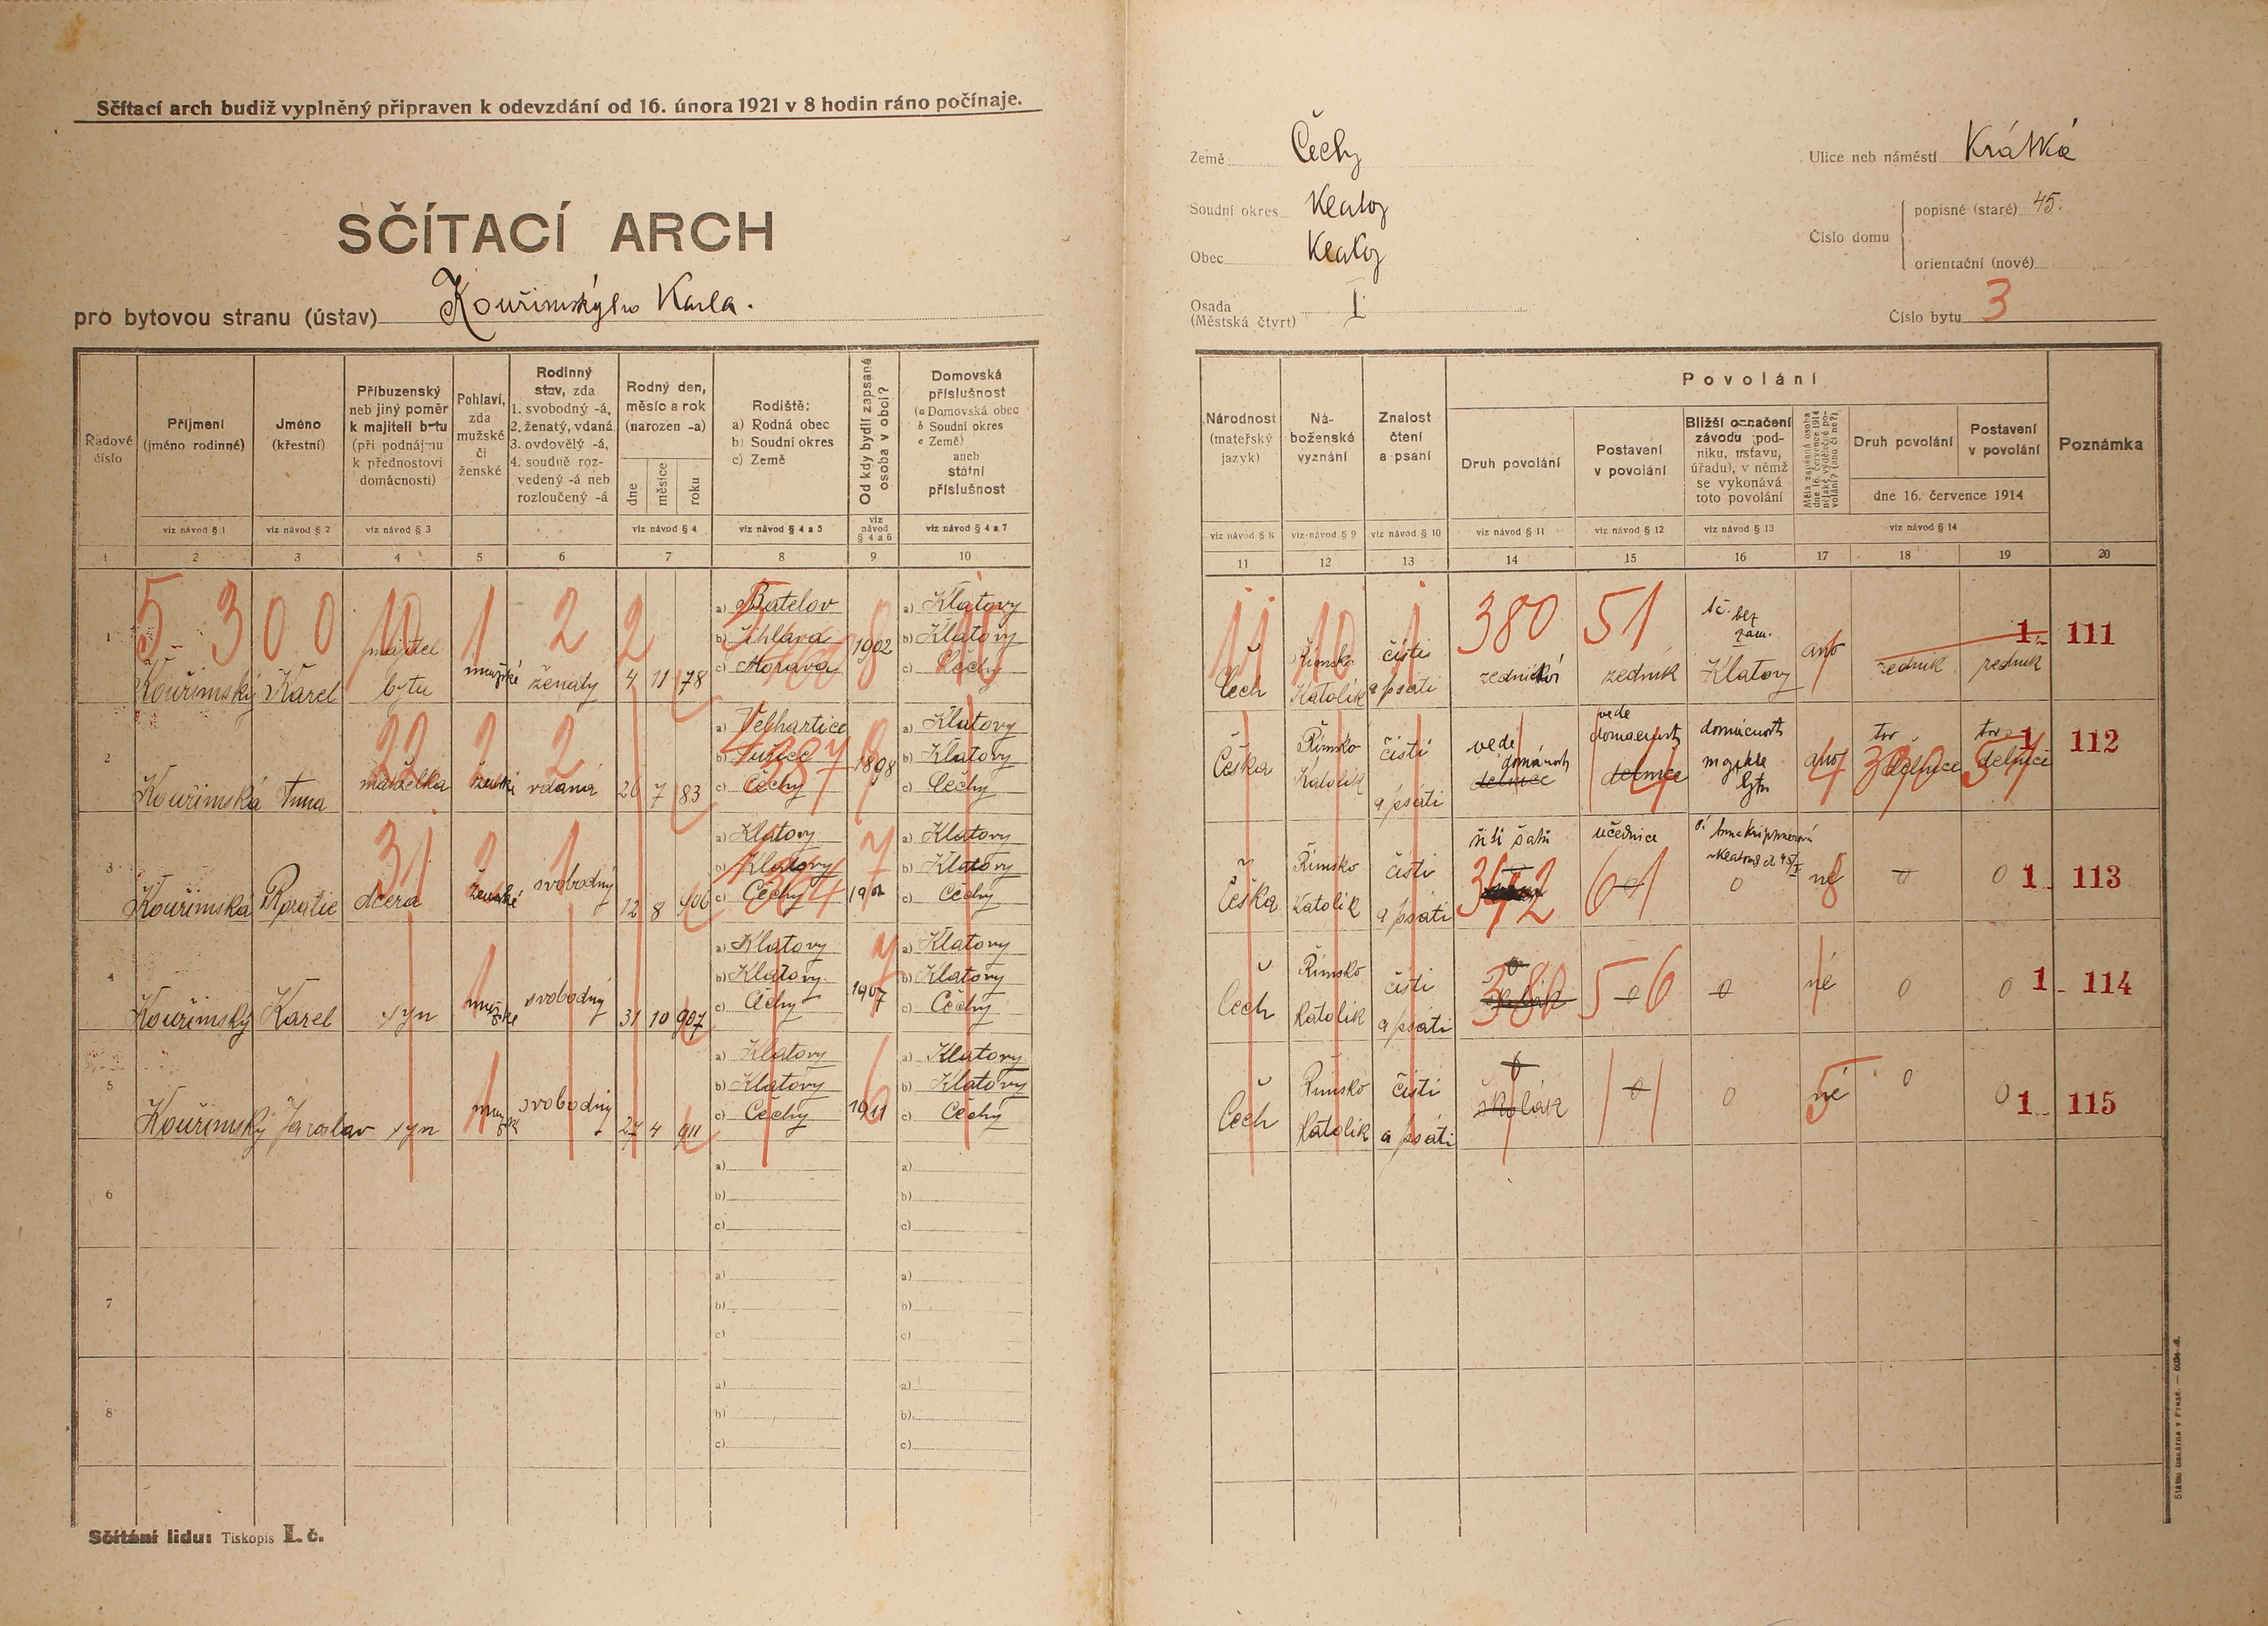 Sčítací arch budiž vyplněný připraven k odevzdání od 16. února 1921 v 8 hodin ráno počínaje.
SČÍTACÍ ARCH
pro bytovou stranu (ústav) Kouřimského Karla.
Země Čechy
Soudní okres Klatovy
Obec Klatovy
Osada (Městská čtvrt) I.
Ulice neb náměstí Krátká
Číslo domu
popisné (staré) 45.
orientační (nové)
Číslo bytu 3
Řadové číslo
Příjmení (jméno rodinné)
Jméno (křestní)
Příbuzenský neb jiný poměr k majiteli bytu (při podnájmu k přednostovi domácnosti)
Pohlaví, zda mužské či ženské
Rodinný stav, zda 1. svobodný -á, 2. ženatý, vdaná 3. ovdovělý -á, 4. soudně rozvedený -á neb rozloučený -á
Rodný den, měsíc a rok (narozen -a)
dne měsíce roku
Rodiště: a) Rodná obec b) Soudní okres c) Země
Od kdy bydlí zapsaná osoba v obci?
Domovská příslušnost (a Domovská obec b Soudní okres c Země) aneb státní příslušnost
viz návod § 1 viz návod § 2 viz návod § 3 viz návod § 4 viz návod § 4 a 5 viz návod § 4 a 6 viz návod § 4 a 7
1 2 3 4 5 6 7 8 9 10
Národnost (mateřský jazyk)
Náboženské vyznání
Znalost čtení a psaní
Povolání
Druh povolání
Postavení v povolání
Bližší označení závodu (podniku, ústavu, úřadu), v němž se vykonává toto povolání
Měla zapsaná osoba dne 16. července 1914 nějaké výdělečné povolání? (ano či ne?)
Druh povolání
Postavení v povolání
dne 16. července 1914
Poznámka
viz návod § 8 viz návod § 9 viz návod § 10 viz návod § 11 viz návod § 12 viz návod § 13 viz návod § 14
11 12 13 14 15 16 17 18 19 20
1 Kouřimský Karel majitel bytu mužské ženatý 4 11 78 a) Batelov b) Jihlava c) Morava 1902 a) Klatovy b) Klatovy c) Čechy
5 3 0 0 10 1 2 2
Čech Římsko Katolík čísti a psáti zednictví zedník t.č. bez zam. Klatovy ano zedník zedník 1. 111
11 10 1 380 51
2 Kouřimská Anna manželka ženské vdaná 26 7 83 a) Velhartice b) Sušice c) Čechy 1898 a) Klatovy b) Klatovy c) Čechy
22 2 2
Češka Římsko Katolík čísti a psáti vede domácnost delnice vede domacnost delnice domácnost majitele bytu ano tov delnice tov. delnice 1 112
3 Kouřimská dcera ženské svobodný 12 8 906 a) Klatovy b) Klatovy c) Čechy a) Klatovy b) Klatovy c) Čechy
31 2 1 7
Češka Římsko Katolík čísti a psáti šití šatů učednice 0 ne 0 0 1. 113
61 8
4 Kouřimský Karel syn mužské svobodný 31 10 907 a) Klatovy b) Klatovy c) Čechy 1907 a) Klatovy b) Klatovy c) Čechy
1
Čech Římsko Katolík čísti a psáti 0 školák 0 0 né 0 0 1. 114
380 56
5 Kouřimský Jaroslav syn svobodný 27 4 911 a) Klatovy b) Klatovy c) Čechy 1911 a) Klatovy b) Klatovy c) Čechy
1 6
Čech Římsko Katolík čísti a psáti 0 školák 0 0 né 0 0 1. 115
11 5
6 a) b) c) a) b) c)
7 a) b) c) a) b) c)
8 a) b) c) a) b) c)
Sčítání lidu: Tiskopis I. č.